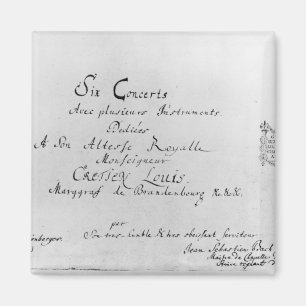 Six Concerts
Avec plusieurs Instruments
Dediées
A Son Altesse Royalle
Monseigneur
CRETIEN LOUIS
Marggraf de Brandenbourg &c.&c.&c.
par
Son tres-humble & tres obeissant serviteur
Jean Sebastien Bach
Maitre de Chapelle